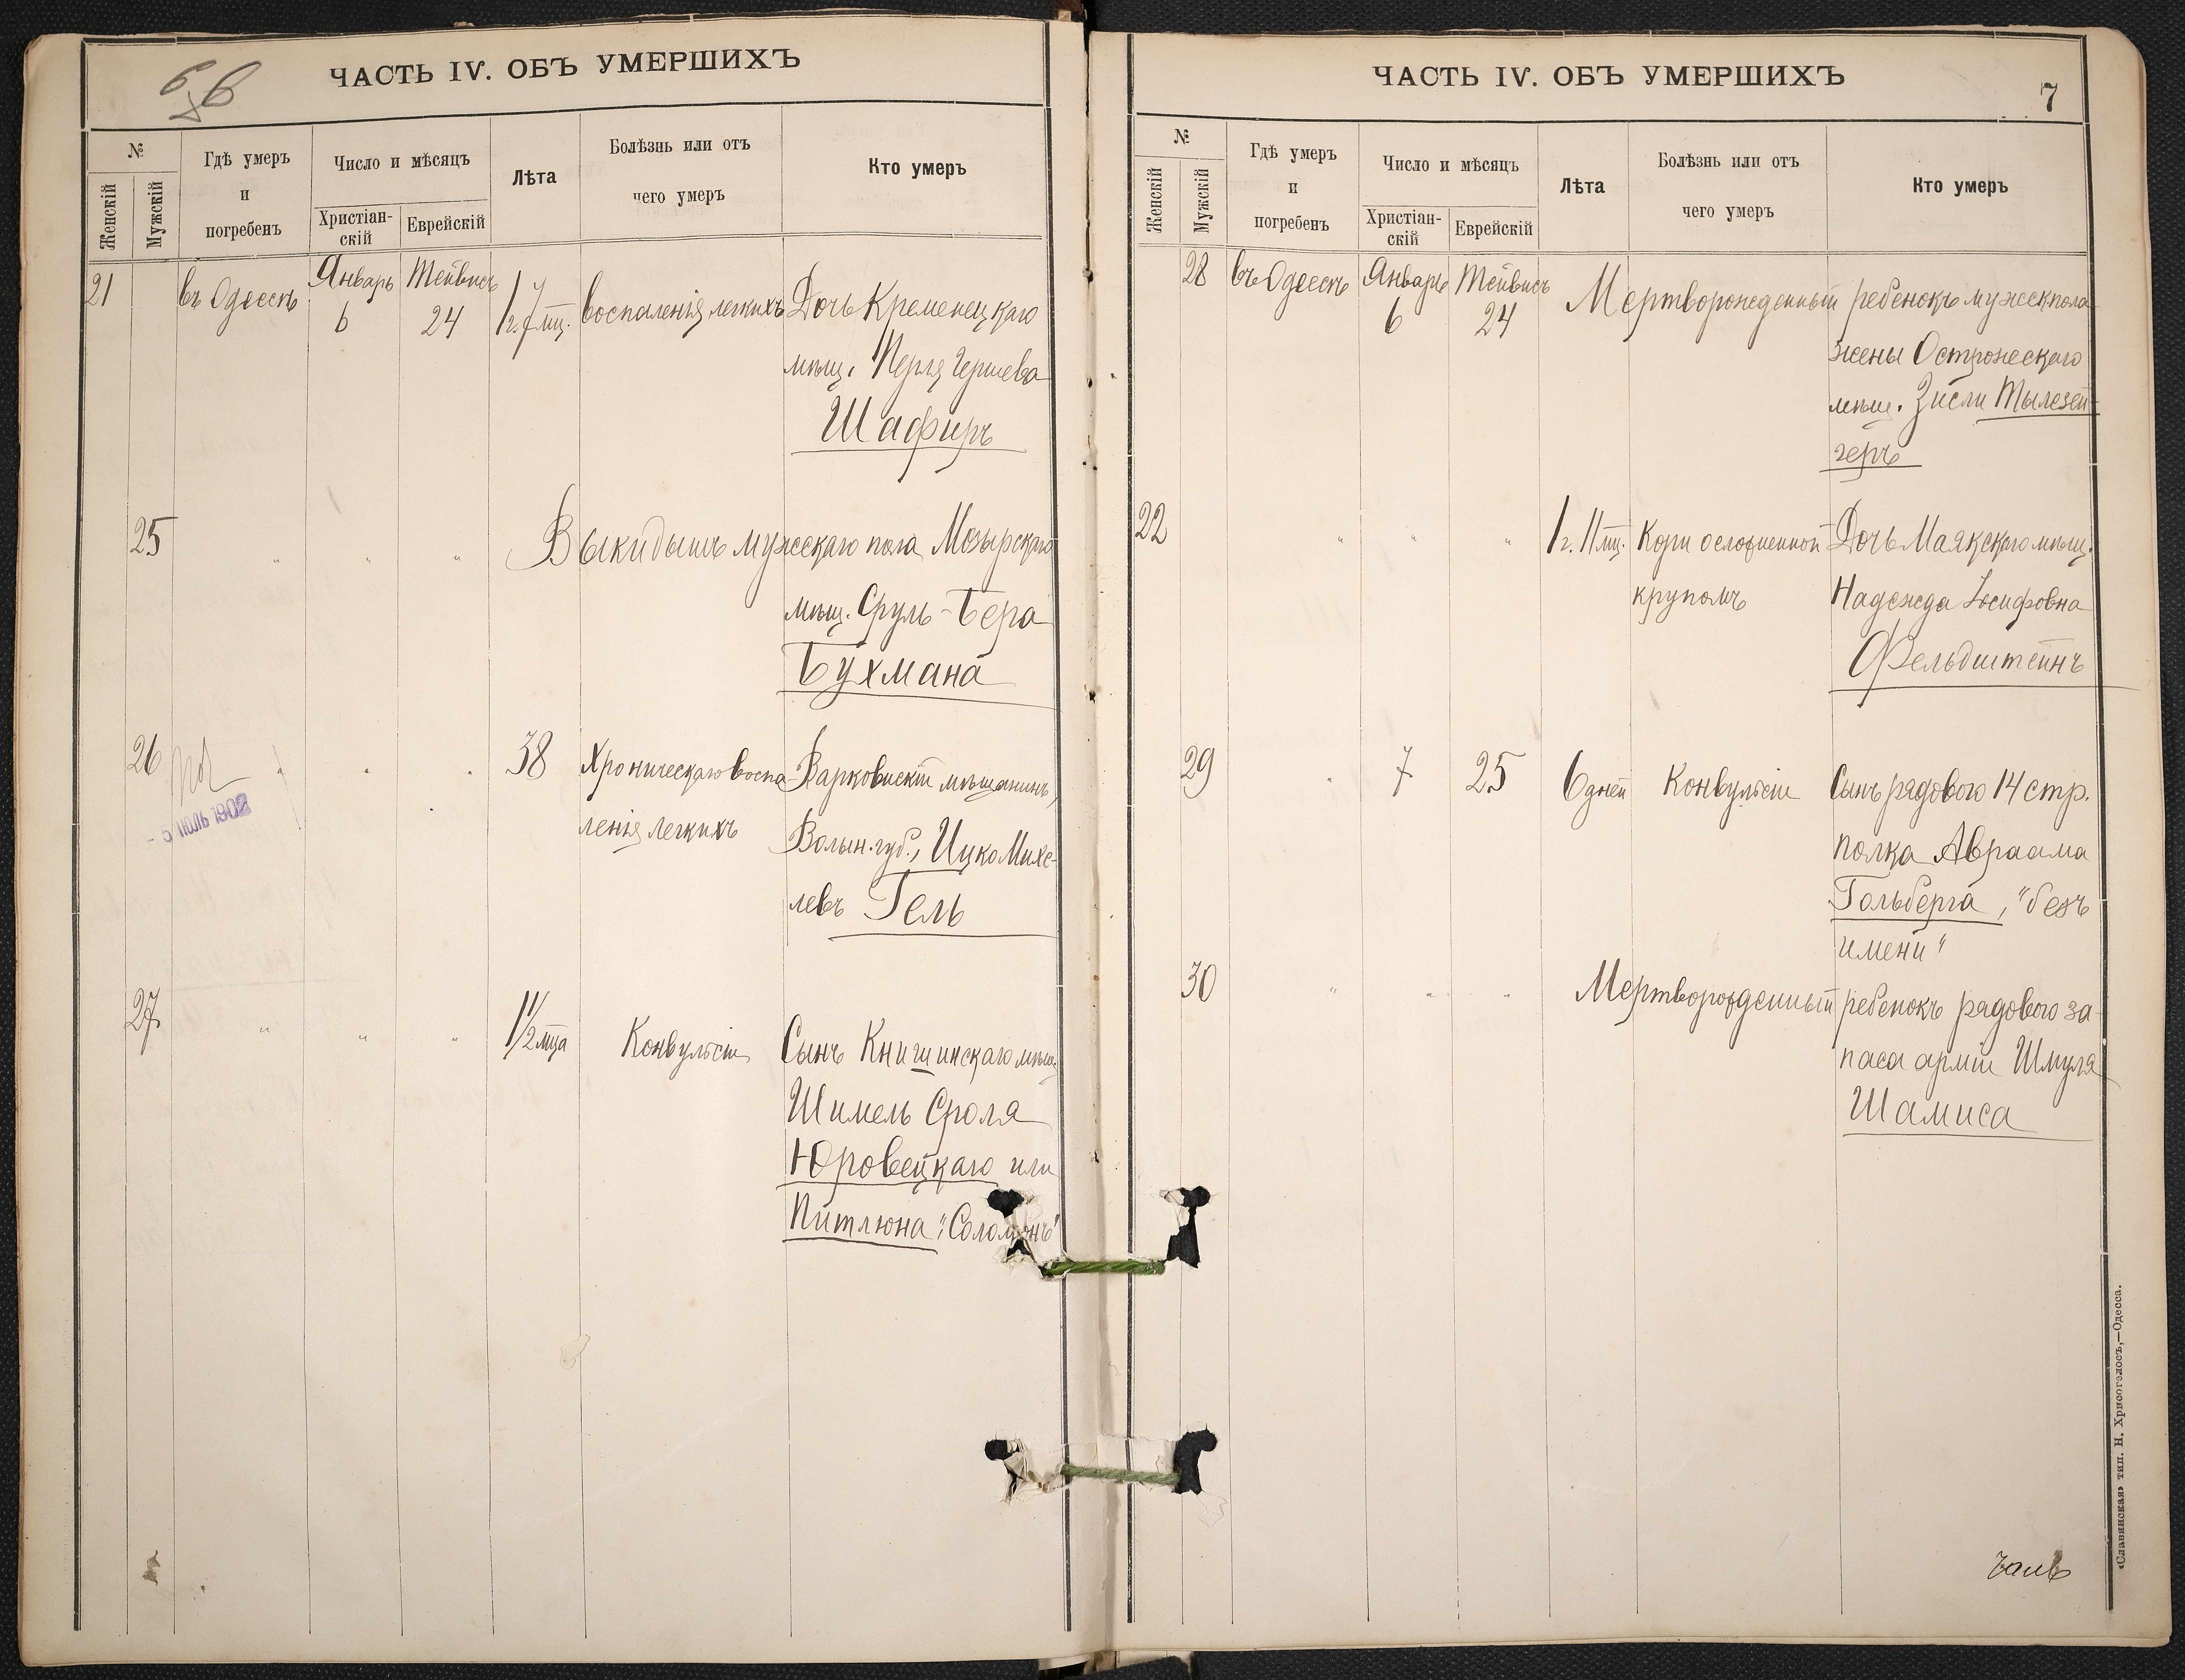 ЧАСТЬ IV. ОБЪ УМЕРШИХЪ
№
Женскій
Мужскій
Гдѣ умеръ
и
погребенъ
Число и мѣсяцъ
Христіан-
скій
Еврейскій
Лѣта
Болѣзнь или отъ
чего умеръ
Кто умеръ
21 въ Одессѣ Январь 6 Тейвисъ 24 1 г. 7 мц. воспаленія легкихъ Дочь Кременецкаго
мѣщ. Перля Гершева
Шафиръ
25 " " " Выкидышъ мужескаго пола Мозырскаго
мѣщ. Сруль-Бера
Бухмана
26 " " " 38 Хроническаго воспа- Варковискій мѣщанинъ,
ленія легкихъ Волын. губ., Ицко Михе-
левъ Гель
- 5 ИЮЛЬ 1902
27 " " " 1 1/2 мца Конвульсіи Сынъ Книшинскаго мѣщ.
Шимель Сроля
Юровецкаго или
Питлюна, "Соломонъ"
ЧАСТЬ IV. ОБЪ УМЕРШИХЪ
7
№
Женскій
Мужскій
Гдѣ умеръ
и
погребенъ
Число и мѣсяцъ
Христіан-
скій
Еврейскій
Лѣта
Болѣзнь или отъ
чего умеръ
Кто умеръ
28 въ Одессѣ Январь 6 Тейвисъ 24 Мертворожденный ребенокъ мужск пола
жены Острожскаго
мѣщ. Зисли Тылезей-
геръ
22 " " " 1 г. 11 мц. Кори осложненной Дочь Маякскаго мѣщ.
крупомъ Надежда Іосифовна
Фельдштейнъ
29 " 7 25 6 дней Конвульсіи Сынъ рядового 14 стр.
полка Авраама
Гольберга, "безъ
имени"
30 " " " Мертворожденный ребенокъ рядового за-
паса арміи Шмуля
Шамиса
«Славянская» тип. Н. Хрисогелосъ,—Одесса.